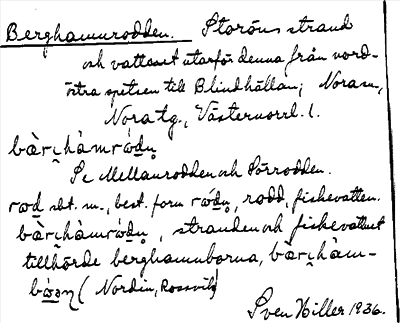 Berghamnrodden. Storöns strand
och vattnet utanför denna från nord-
östra spetsen till Blindhällan; Noram,
Nora tg., Västernorrl. l.
bæ̀rc̨hàmrẃdn̥
Se Mellanrodden och Sörrodden.
rɷd sbt. m., best. form rẃdn̥, rodd, fiskevatten.
bæ̀rc̨hàmrẃdn̥, stranden och fiskevattnet
tillhörde berghamnborna, bæ̀rc̨hàm-
(Nordin, Rossvik)
Sven Hiller 1936.